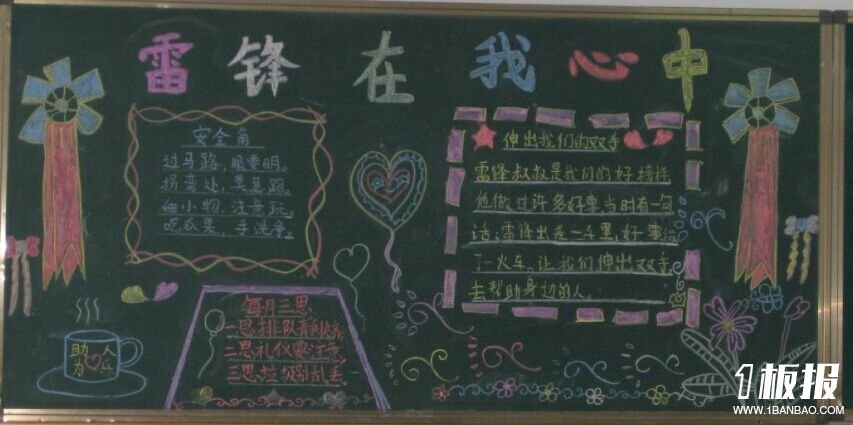 雷锋在我心中
安全角
过马路,眼要明。
拐弯处,莫急跑。
细小物,注意玩。
吃瓜果,手洗净。
伸出我们的双手
雷锋叔叔是我们的好榜样
他做过许多好事,当时有一句
话:雷锋出差一千里,好事做
了一火车。让我们伸出双手
去帮助身边的人。
每月三思
一思排队
二思礼仪要注意
三思垃圾别乱丢
助人
为乐
1板报
WWW.1BANBAO.COM